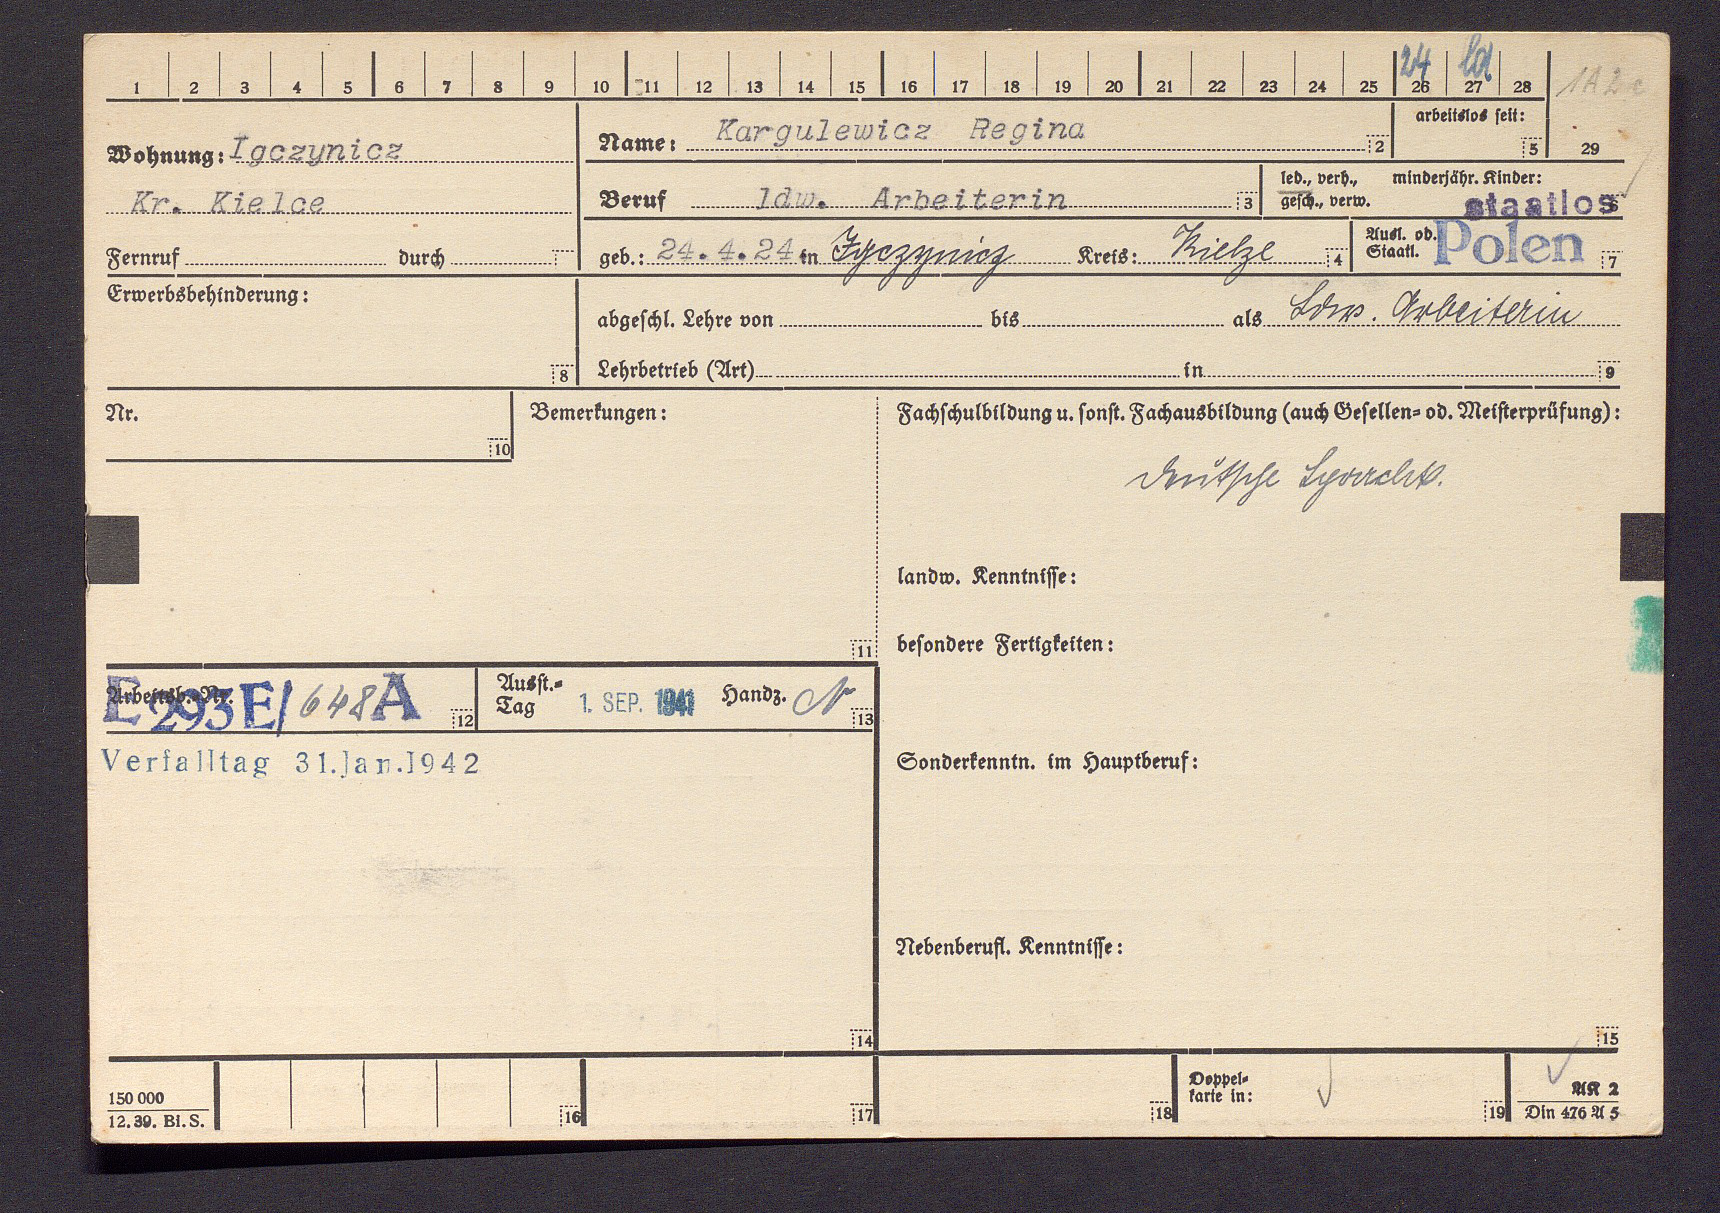 24 Ld
1 2 3 4 5 6 7 8 9 10 11 12 13 14 15 16 17 18 19 20 21 22 23 24 25 26 27 28
1A2c
29
Wohnung: Igczynicz
Kr. Kielce
Fernruf durch
Name: Kargulewicz Regina 2
arbeitslos seit: 5
Beruf ldw. Arbeiterin 3
led., verh., minderjähr. Kinder:
gesch., verw. 6
staatlos
geb.: 24.4.24 in Igczynicz Kreis: Kielze 4
Ausl. od.
Staatl. Polen 7
Erwerbsbehinderung:
8
abgeschl. Lehre von bis als Ldw. Arbeiterin
Lehrbetrieb (Art) in 9
Nr.
10
Bemerkungen:
11
Fachschulbildung u. sonst. Fachausbildung (auch Gesellen- od. Meisterprüfung):
deutsche Sprachk.
landw. Kenntnisse:
besondere Fertigkeiten:
Arbeitsb.-Nr.
E 293 E/648 A 12
Ausst.-
Tag 1. SEP. 1941 Handz. 13
Verfalltag 31.Jan.1942
Sonderkenntn. im Hauptberuf:
Nebenberufl. Kenntnisse:
14
15
150 000
12. 39. Bl. S.
16
17
18
Doppel-
karte in:
19
AK 2
Din 476 A 5